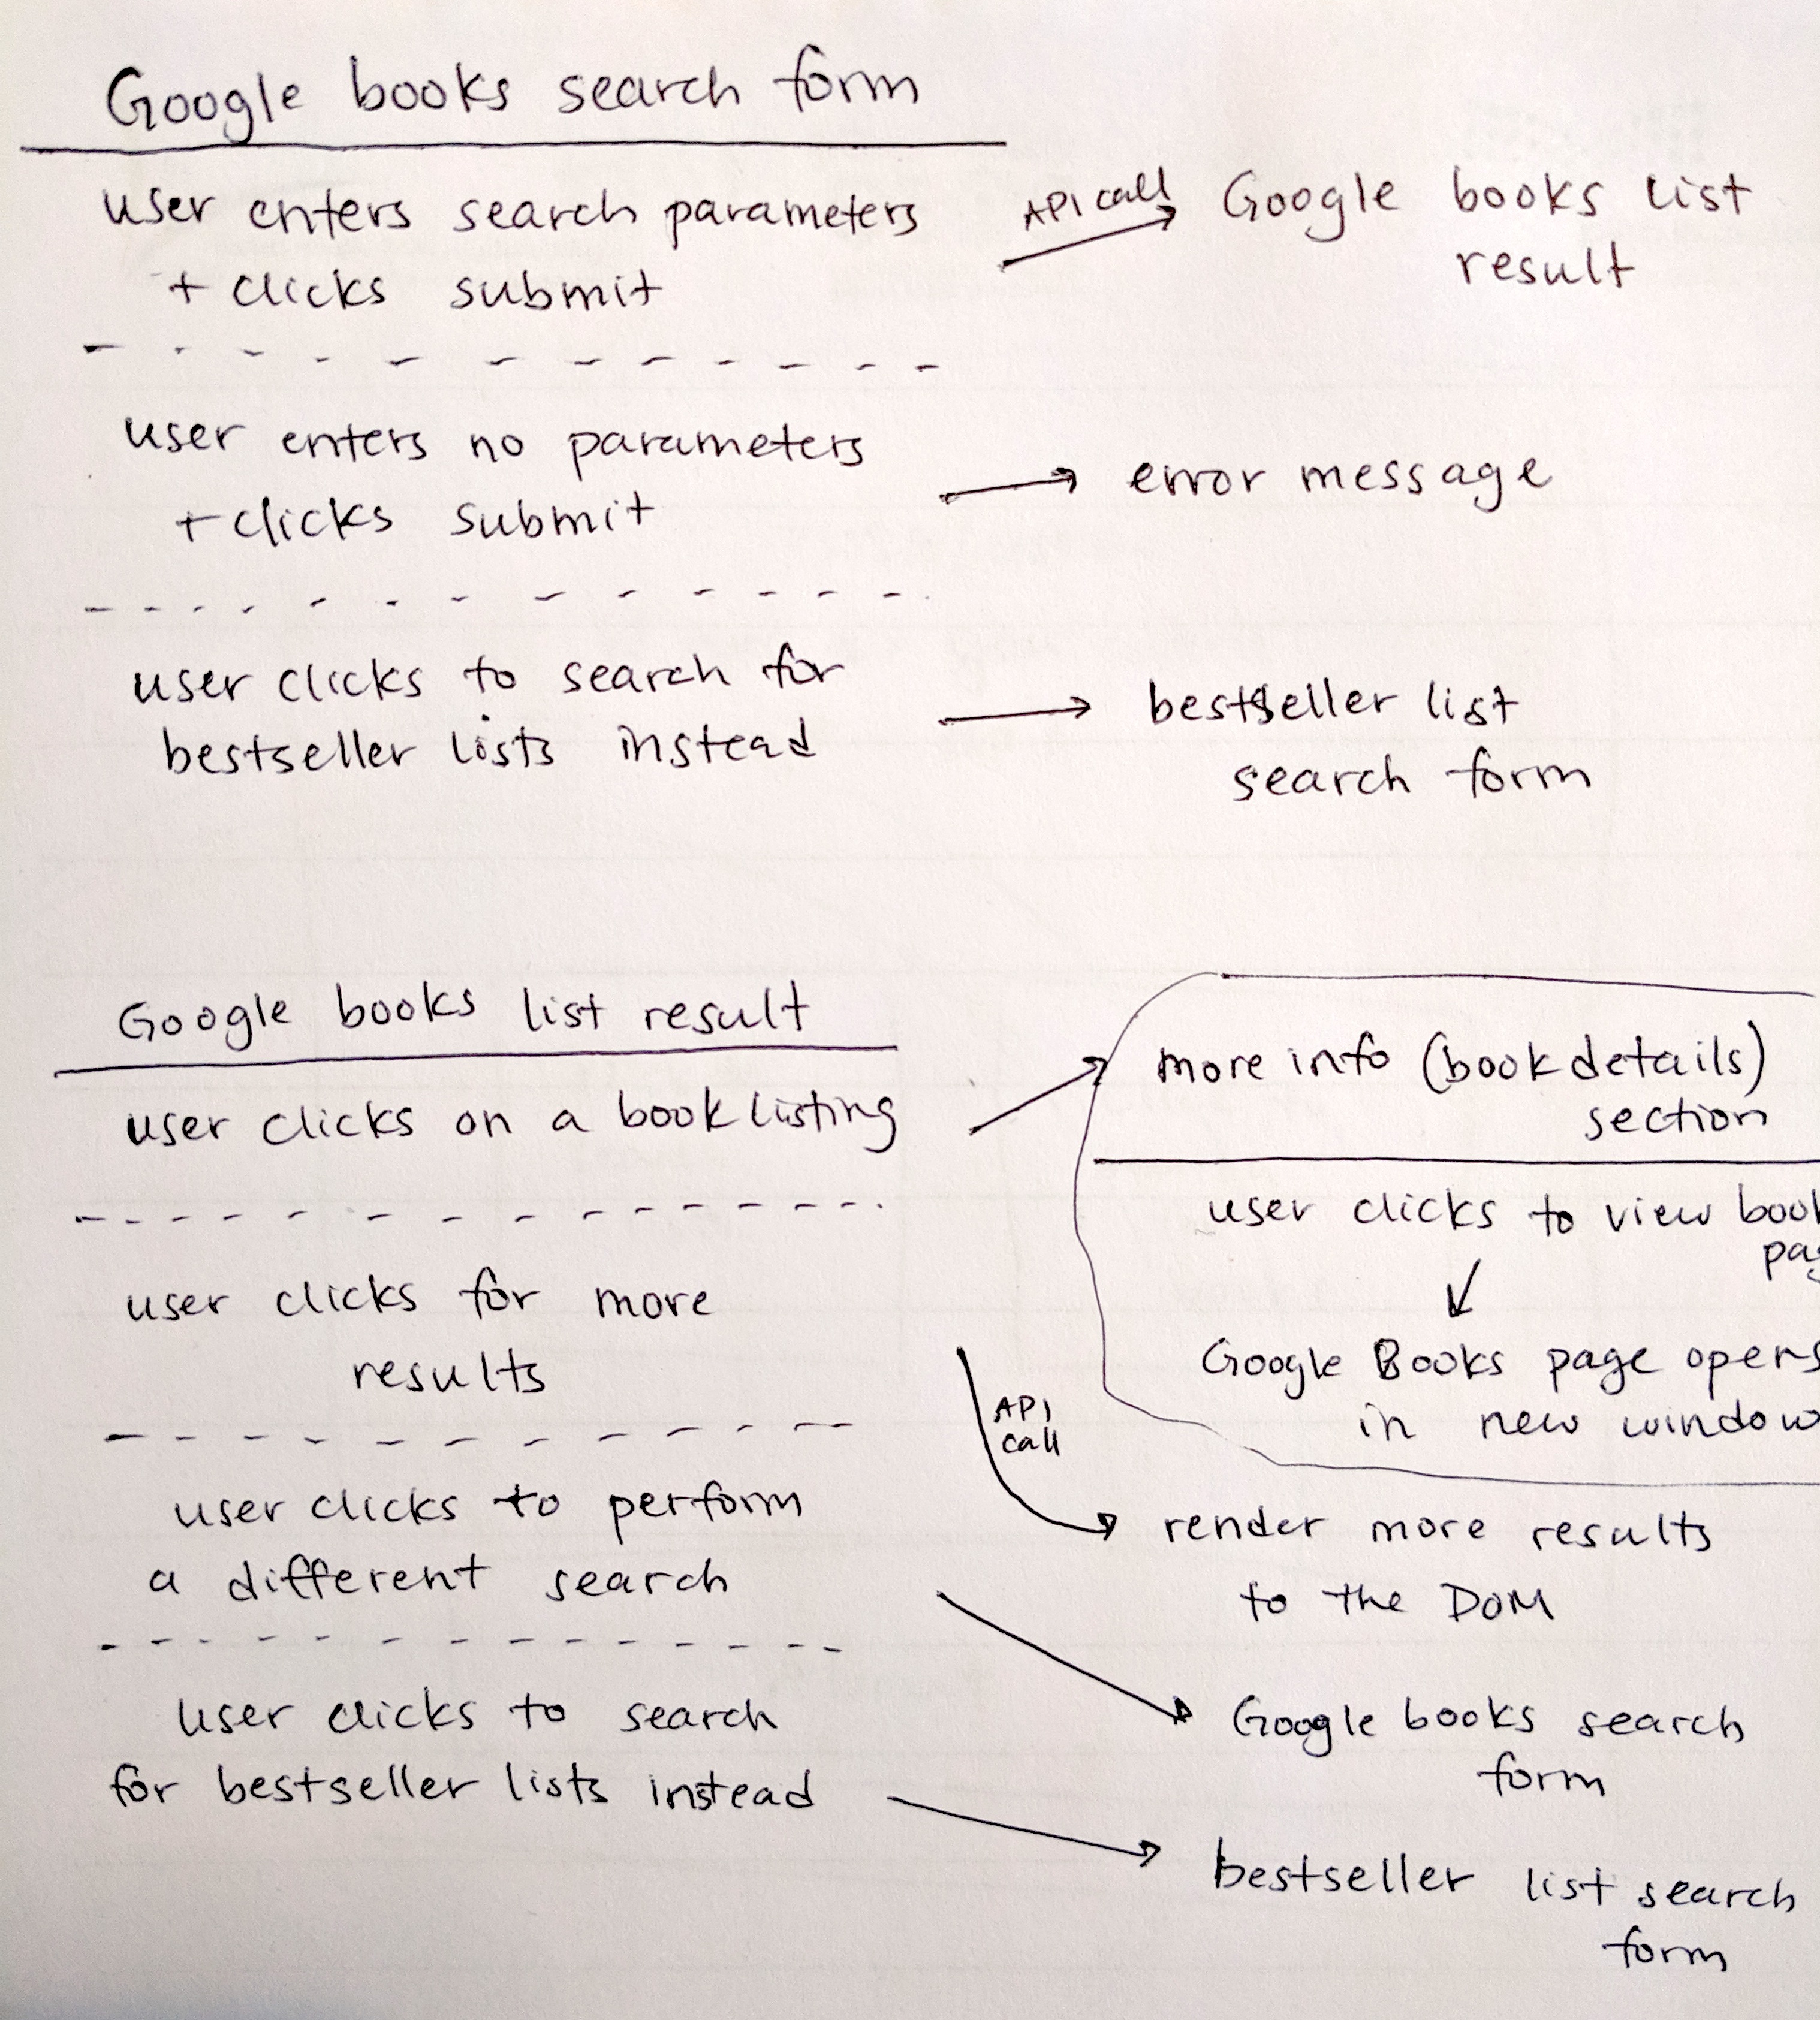 Google books search form
user enters search parameters
+ clicks submit
API call
Google books list
result
user enters no parameters
+ clicks submit
error message
user clicks to search for
bestseller lists instead
bestseller list
search form
Google books list result
user clicks on a book listing
more info (book details)
section
user clicks to view
Google Books page opens
in new window
user clicks for more
results
API
call
render more results
to the DOM
user clicks to perform
a different search
Google books search
form
user clicks to search
for bestseller lists instead
bestseller list search
form